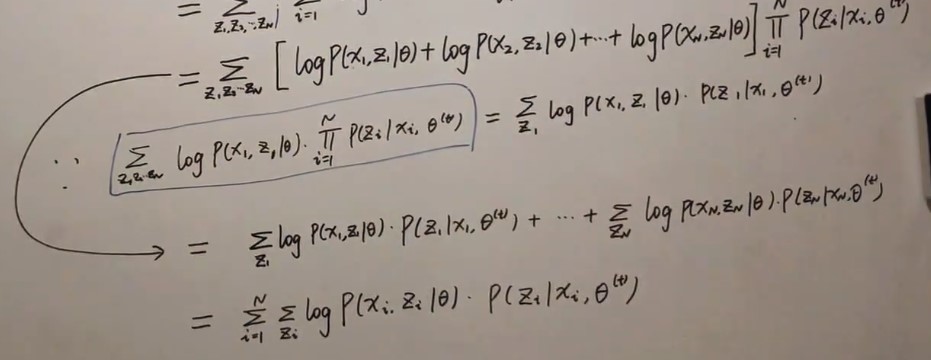 = Σ_{z₁z₂…z_N} Σ_{i=1}
= Σ_{z₁z₂…z_N} [log P(x₁,z₁|θ) + log P(x₂,z₂|θ) + ⋯ + log P(x_N,z_N|θ)] ∏_{i=1}^{N} P(z_i|x_i,θ^{(t)})
∵ Σ_{z₁z₂…z_N} log P(x₁,z₁|θ) · ∏_{i=1}^{N} P(z_i|x_i,θ^{(t)}) = Σ_{z₁} log P(x₁,z₁|θ) · P(z₁|x₁,θ^{(t)})
= Σ_{z₁} log P(x₁,z₁|θ) · P(z₁|x₁,θ^{(t)}) + ⋯ + Σ_{z_N} log P(x_N,z_N|θ) · P(z_N|x_N,θ^{(t)})
= Σ_{i=1}^{N} Σ_{z_i} log P(x_i,z_i|θ) · P(z_i|x_i,θ^{(t)})